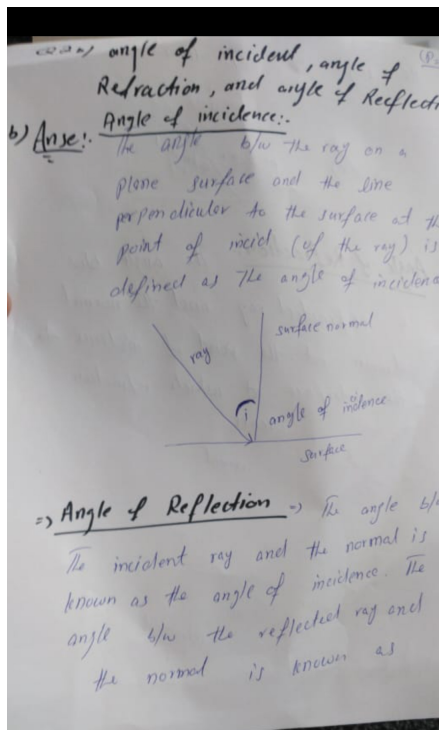 angle of incident, angle of
Refraction, and angle of Reflecti
b) Ans:. Angle of incidence:.
The angle b/w the ray on a
plane surface and the line
perpendicular to the surface at th
point of incid (of the ray) is
defined as the angle of incidenc
surface normal
ray
i
angle of incidence
surface
=> Angle of Reflection => The angle b/w
The incident ray and the normal is
known as the angle of incidence. The
angle b/w the reflected ray and
the normal is known as